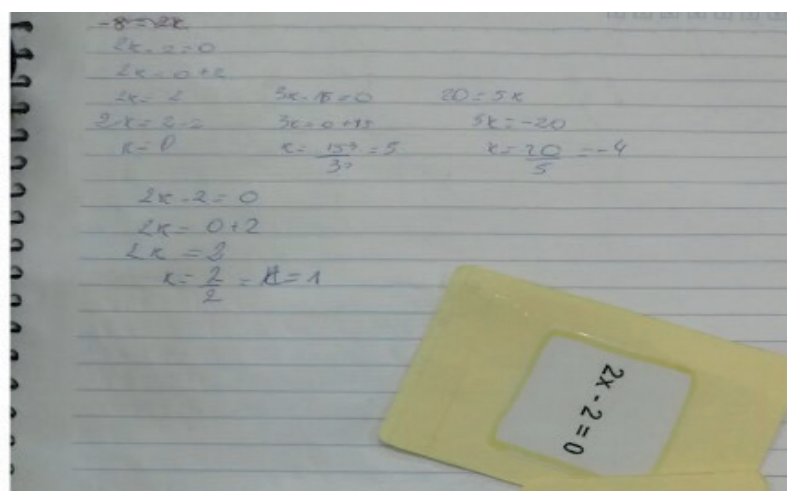 -8 = 2x
2x - 2 = 0
2x = 0 + 2
2x = 2
2x = 2 - 2
x = 0
3x - 15 = 0
3x = 0 + 15
x = 15/3 = 5
20 = 5x
5x = -20
x = 20/5 = -4
2x - 2 = 0
2x = 0 + 2
2x = 2
x = 2/2 = 1 = 1
2x - 2 = 0